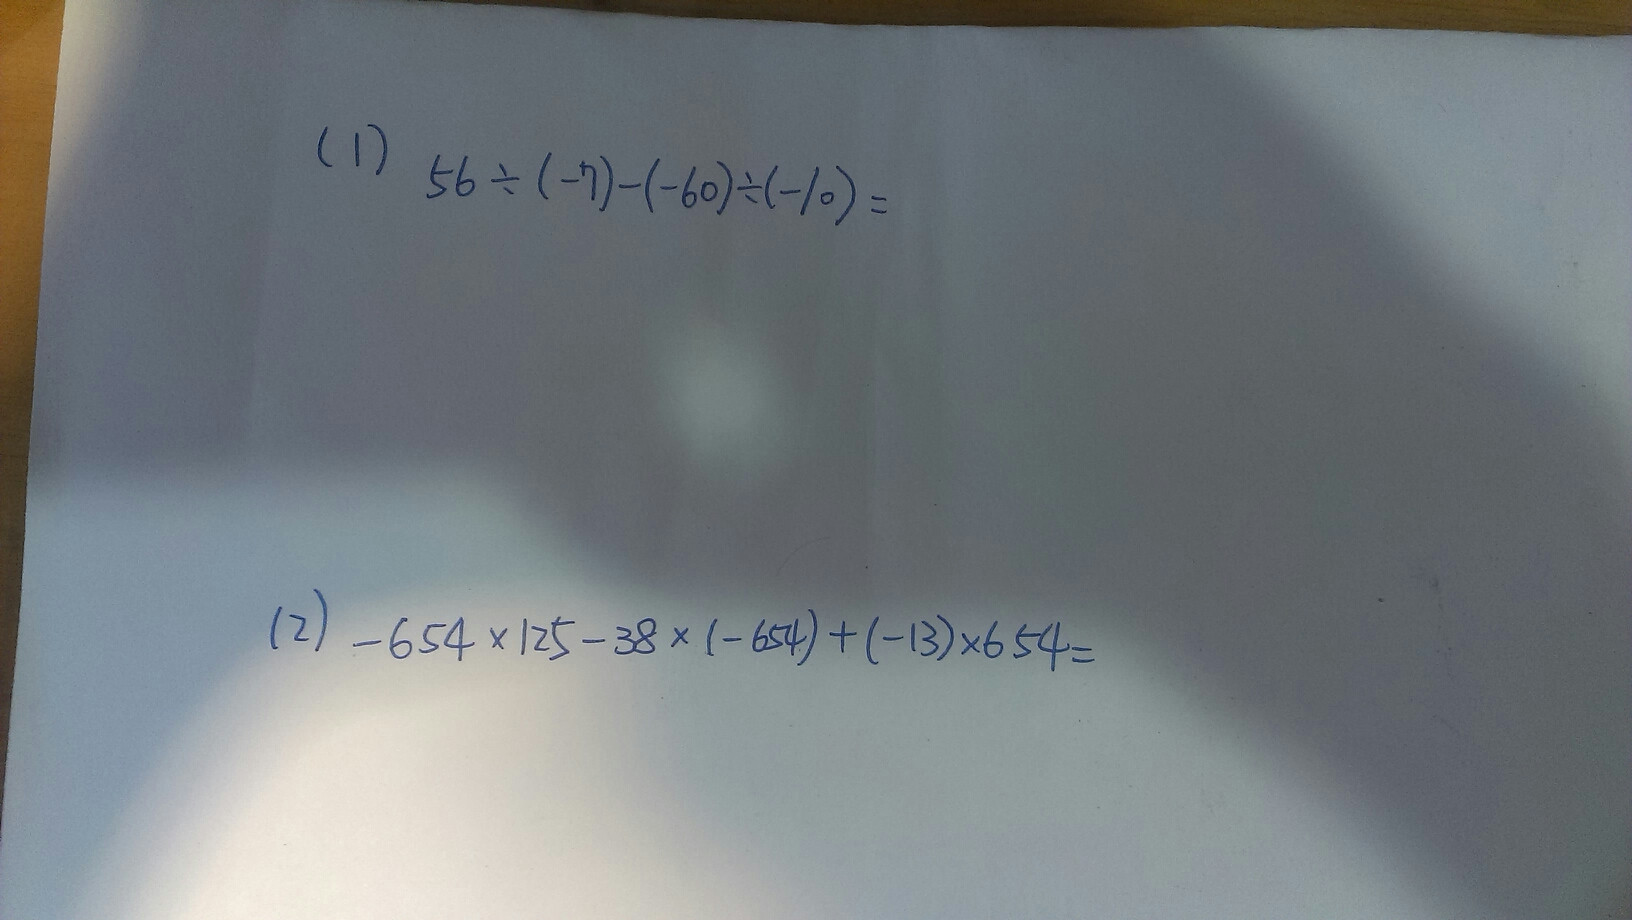 (1) 56÷(-7)-(-60)÷(-10)=
(2) -654×125-38×(-654)+(-13)×654=